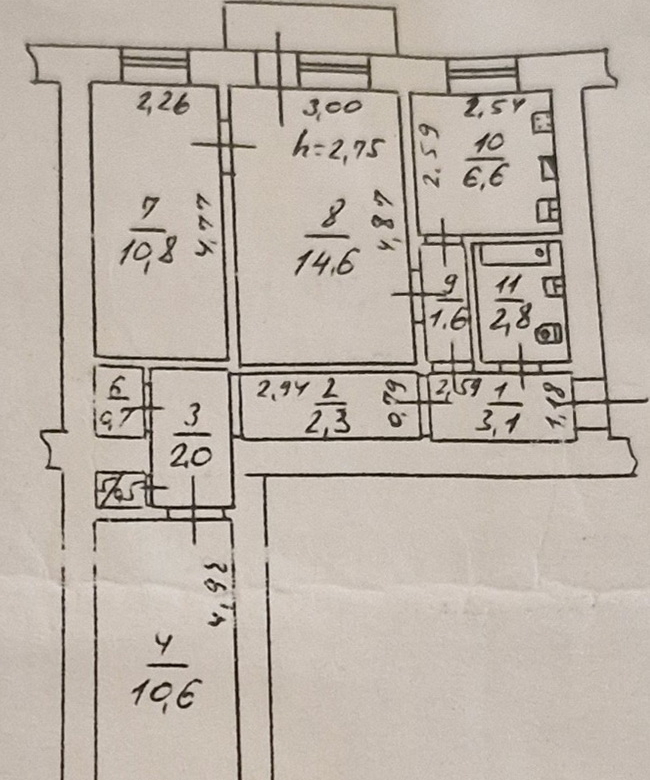 2,26
3,00
2,54
h=2,75
2,59
10
6,6
7
10,8
4,77
8
14,6
4,87
9
1.6
11
2,8
6
0,7
3
2.0
2,94
2
2,3
0,79
2,59
1
3,1
1,18
5/0,5
4,92
4
10,6